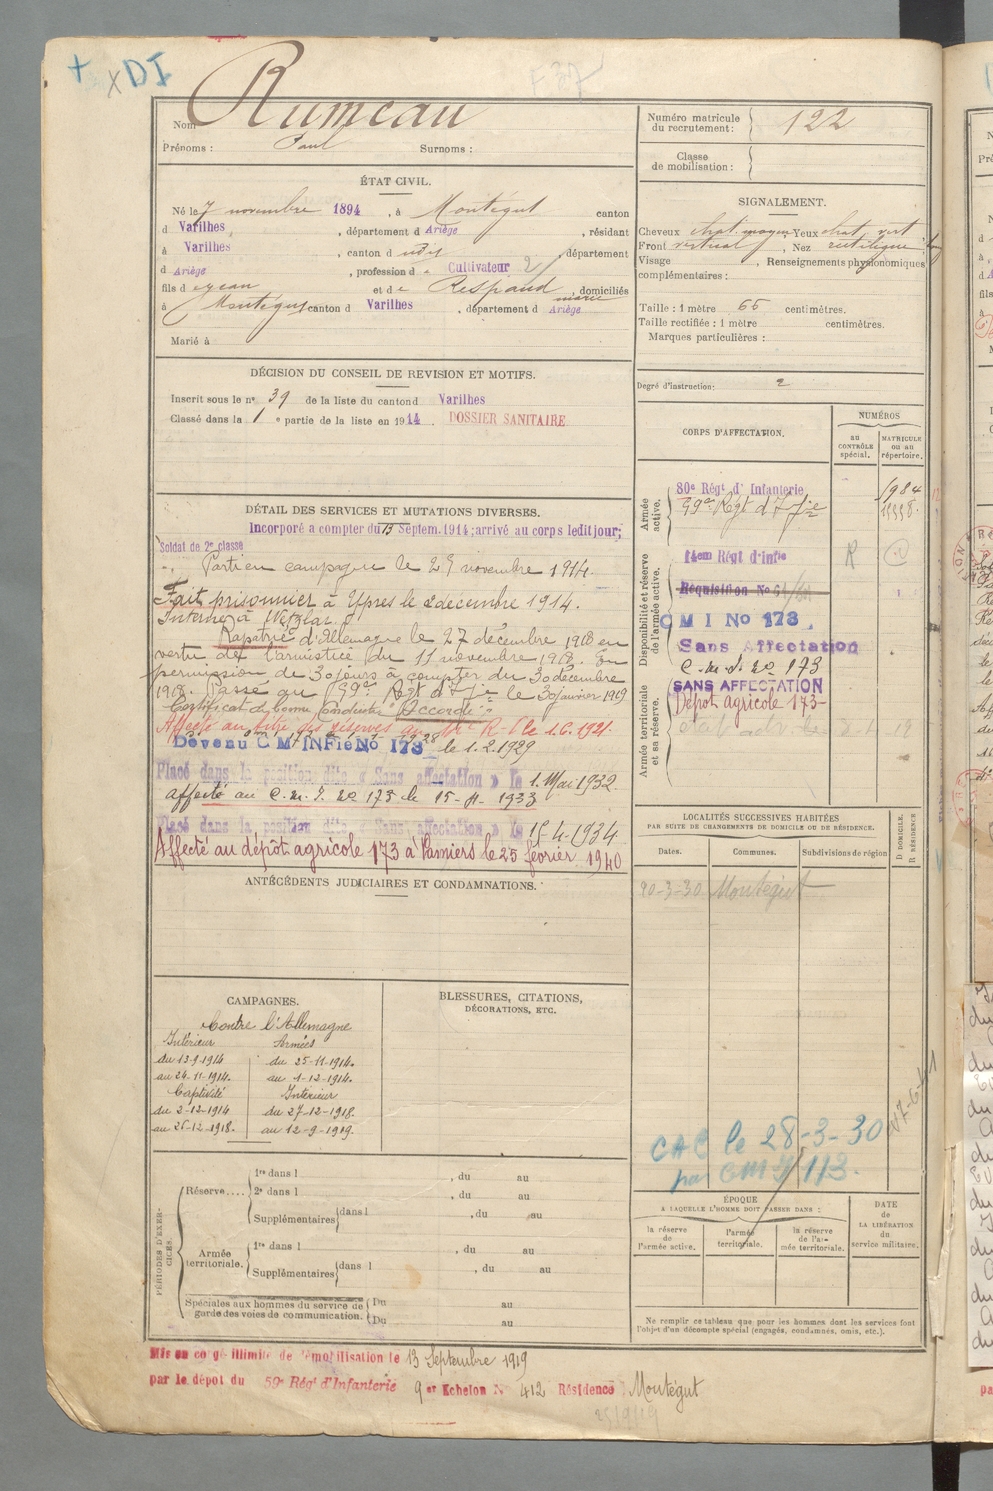 + x DI
Nom Rumeau
Prénoms : Paul Surnoms :
Numéro matricule du recrutement : 122
Classe de mobilisation :
ÉTAT CIVIL.
Né le 7 novembre 1894, à Montégut canton
d Varilhes, département d Ariège, résidant
à Varilhes, canton d udis, département
d Ariège, profession d e Cultivateur 2
fils d et d e Respaud marie, domiciliés
à Montégut canton d Varilhes, département d Ariège
Marié à
SIGNALEMENT.
Cheveux chat. moyen Yeux chat. vert
Front vertical, Nez rectiligne
Visage , Renseignements physionomiques
complémentaires :
Taille : 1 mètre 65 centimètres.
Taille rectifiée : 1 mètre centimètres.
Marques particulières :
Degré d'instruction : 2
DÉCISION DU CONSEIL DE REVISION ET MOTIFS.
Inscrit sous le n° 39 de la liste du canton d Varilhes
Classé dans la 1 e partie de la liste en 1914. DOSSIER SANITAIRE
DÉTAIL DES SERVICES ET MUTATIONS DIVERSES.
Incorporé a compter du 13 Septem. 1914; arrivé au corps ledit jour;
Soldat de 2e classe
Parti en campagne le 25 novembre 1914.
Fait prisonnier à Ypres le 2 decembre 1914.
Interné à Wetzlar.
Rapatrié d'Allemagne le 27 décembre 1918 en
vertu de l'armistice du 11 novembre 1918. En
permission de 30 jours à compter du 30 décembre
1918. Passé au Regt d'Iie le 30 janvier 1919
Certificat de bonne Conduite "Accordé"
Affecté au titre des réserves au R-I le 1.6.1921.
Devenu C M INFie No 173 le 1.2.1929
Placé dans la position dite « Sans affectation » le 1. Mai 1932.
affecté au C.M.I. no 173 le 1933
Placé dans la position dite « Sans affectation » le 15-4-1934
Affecté au dépôt agricole 173 à Pamiers le 25 février 1940
CORPS D'AFFECTATION.
NUMÉROS
au CONTRÔLE spécial.
MATRICULE ou au répertoire.
Armée active.
80e Régt d'Infanterie
Régt d'Iie
Disponibilité et réserve de l'armée active.
14em Régt d'infie R
Réquisition No
C M I No 173.
Sans Affectation
C.M.I. no 173
Armée territoriale et sa réserve.
SANS AFFECTATION
Dépot agricole 173
LOCALITÉS SUCCESSIVES HABITÉES
PAR SUITE DE CHANGEMENTS DE DOMICILE OU DE RÉSIDENCE.
Dates. Communes. Subdivisions de région
D DOMICILE. R RÉSIDENCE
20-3-30 Montégut
CAC le 28-3-30
par CMI 173.
ANTÉCÉDENTS JUDICIAIRES ET CONDAMNATIONS.
CAMPAGNES.
Contre l'Allemagne
Intérieur Armées
du 13-9-1914 du 25-11-1914.
au 24-11-1914. au 1-12-1914.
Captivité Intérieur
du 2-12-1914 du 27-12-1918.
au 26-12-1918. au 12-9-1919.
BLESSURES, CITATIONS,
DÉCORATIONS, ETC.
PÉRIODES D'EXERCICES.
Réserve....
1re dans l , du au
2e dans l , du au
Supplémentaires dans l , du au
Armée territoriale.
1re dans l , du au
Supplémentaires dans l , du au
Spéciales aux hommes du service de garde des voies de communication.
Du au
Du au
ÉPOQUE
A LAQUELLE L'HOMME DOIT PASSER DANS :
la réserve de l'armée active.
l'armée territoriale.
la réserve de l'armée territoriale.
DATE de LA LIBÉRATION du service militaire.
Ne remplir ce tableau que pour les hommes dont les services font
l'objet d'un décompte spécial (engagés, condamnés, omis, etc.).
Mis en congé illimité de démobilisation le 13 Septembre 1919
par le dépot du 59e Régt d'Infanterie 9 er Echelon N° 412 Résidence Montégut